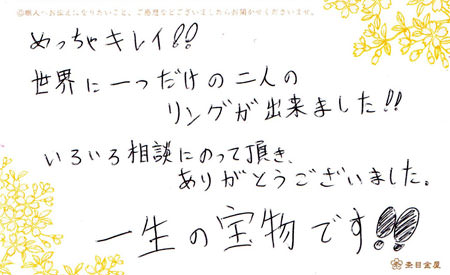 ◎職人へお伝えになりたいこと、ご感想などございましたらお聞かせくださいませ。
めっちゃキレイ!!
世界に一つだけの二人の
リングが出来ました!!
いろいろ相談にのって頂き、
ありがとうございました。
一生の宝物です!!
杢目金屋